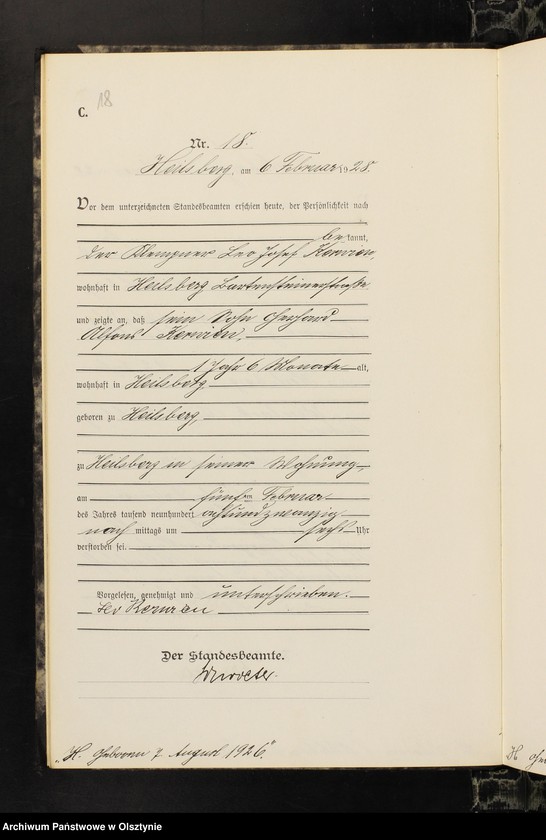 18
C.
Nr. 18.
Heilsberg, am 6 Februar 1928.
Vor dem unterzeichneten Standesbeamten erschien heute, der Persönlichkeit nach
bekannt,
der Klempner Leo Josef
wohnhaft in Heilsberg Bartensteinerstraße
und zeigte an, daß sein Sohn Gerhard
Alfons
1 Jahr 6 Monate alt,
wohnhaft in Heilsberg
geboren zu Heilsberg,
zu Heilsberg in seiner Wohnung,
am fünften Februar
des Jahres tausend neunhundert achtundzwanzig
nach mittags um sechs Uhr
verstorben sei.
Vorgelesen, genehmigt und unterschrieben.
Leo
Der Standesbeamte.
"H. Geboren 7 August 1926."
Archiwum Państwowe w Olsztynie